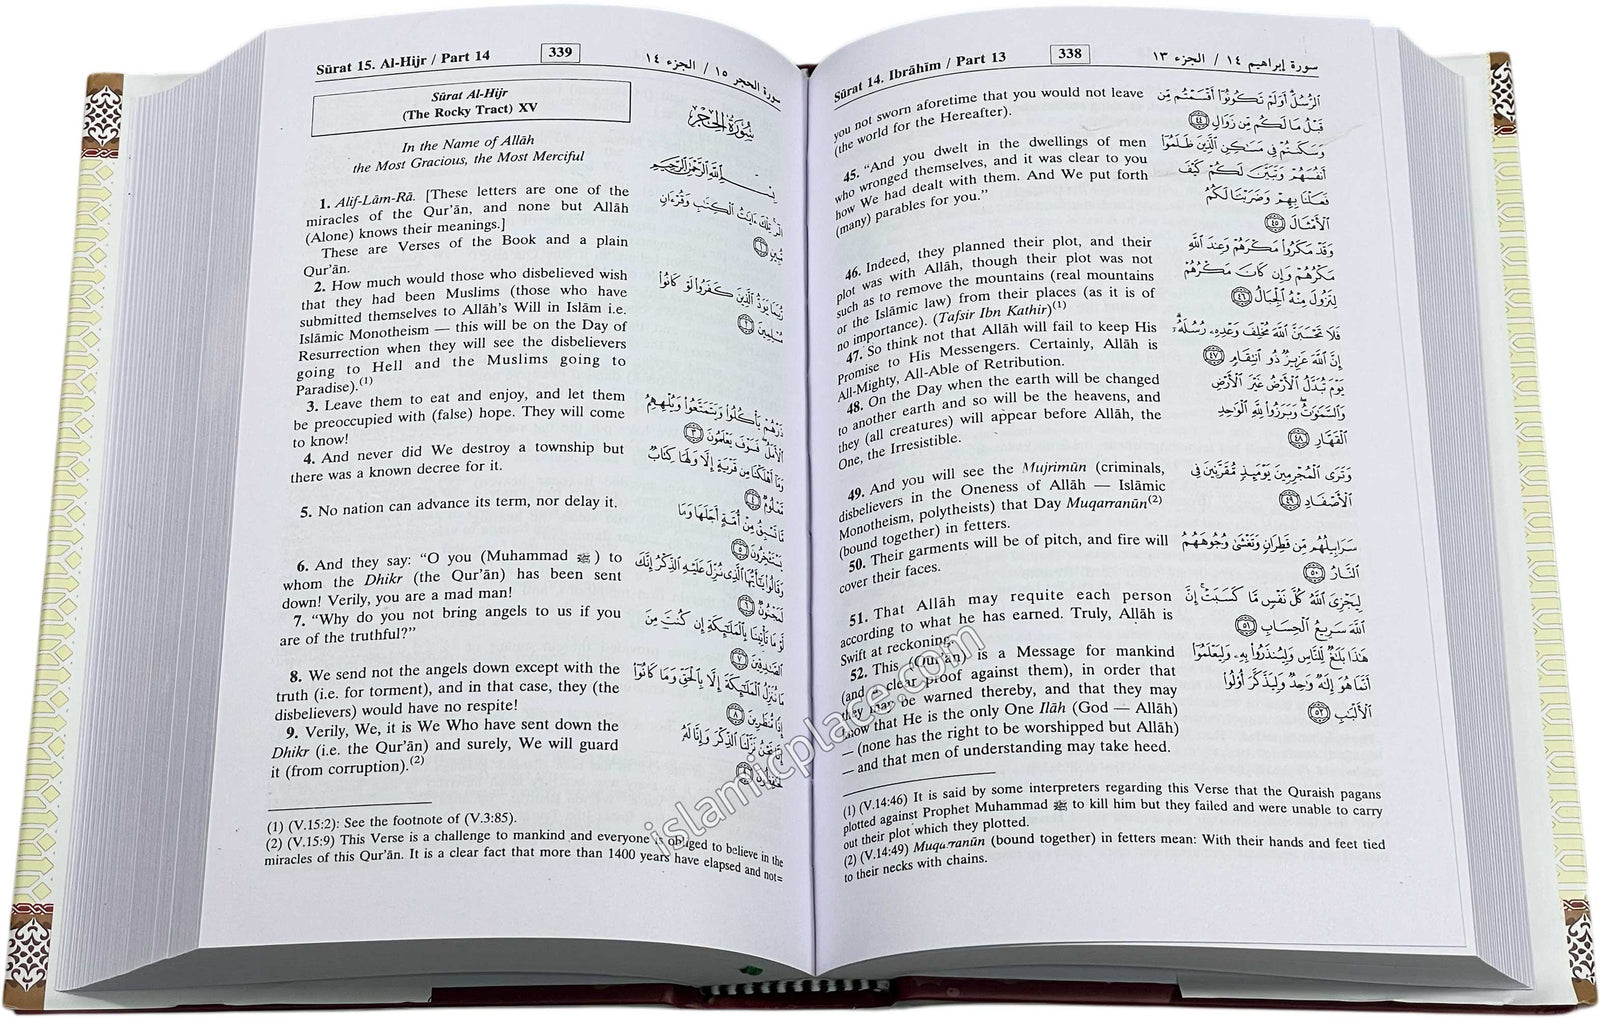 Sūrat 14. Ibrāhīm / Part 13
338
سورة إبراهيم ١٤ / الجزء ١٣
you not sworn aforetime that you would not leave
(the world for the Hereafter).
45. “And you dwelt in the dwellings of men
who wronged themselves, and it was clear to you
how We had dealt with them. And We put forth
(many) parables for you.”
46. Indeed, they planned their plot, and their
plot was with Allāh, though their plot was not
such as to remove the mountains (real mountains
or the Islāmic law) from their places (as it is of
no importance). (Tafsir Ibn Kathir)(1)
47. So think not that Allāh will fail to keep His
Promise to His Messengers. Certainly, Allāh is
All-Mighty, All-Able of Retribution.
48. On the Day when the earth will be changed
to another earth and so will be the heavens, and
they (all creatures) will appear before Allāh, the
One, the Irresistible.
49. And you will see the Mujrimūn (criminals,
disbelievers in the Oneness of Allāh — Islāmic
Monotheism, polytheists) that Day Muqarranūn(2)
(bound together) in fetters.
50. Their garments will be of pitch, and fire will
cover their faces.
51. That Allāh may requite each person
according to what he has earned. Truly, Allāh is
Swift at reckoning.
52. This (Qur’ān) is a Message for mankind
(and a clear proof against them), in order that
they may be warned thereby, and that they may
know that He is the only One Ilāh (God — Allāh)
— (none has the right to be worshipped but Allāh)
— and that men of understanding may take heed.
ٱلرُّسُلَ أَوَلَمْ تَكُونُوٓا۟ أَقْسَمْتُم مِّن
قَبْلُ مَا لَكُم مِّن زَوَالٍ ٤٤
وَسَكَنتُمْ فِى مَسَـٰكِنِ ٱلَّذِينَ ظَلَمُوٓا۟
أَنفُسَهُمْ وَتَبَيَّنَ لَكُمْ كَيْفَ
فَعَلْنَا بِهِمْ وَضَرَبْنَا لَكُمُ
ٱلْأَمْثَالَ ٤٥
وَقَدْ مَكَرُوا۟ مَكْرَهُمْ وَعِندَ ٱللَّهِ
مَكْرُهُمْ وَإِن كَانَ مَكْرُهُمْ
لِتَزُولَ مِنْهُ ٱلْجِبَالُ ٤٦
فَلَا تَحْسَبَنَّ ٱللَّهَ مُخْلِفَ وَعْدِهِۦ رُسُلَهُۥٓ
إِنَّ ٱللَّهَ عَزِيزٌ ذُو ٱنتِقَامٍ ٤٧
يَوْمَ تُبَدَّلُ ٱلْأَرْضُ غَيْرَ ٱلْأَرْضِ
وَٱلسَّمَـٰوَٰتُ وَبَرَزُوا۟ لِلَّهِ ٱلْوَٰحِدِ
ٱلْقَهَّارِ ٤٨
وَتَرَى ٱلْمُجْرِمِينَ يَوْمَئِذٍ مُّقَرَّنِينَ فِى
ٱلْأَصْفَادِ ٤٩
سَرَابِيلُهُم مِّن قَطِرَانٍ وَتَغْشَىٰ وُجُوهَهُمُ
ٱلنَّارُ ٥٠
لِيَجْزِىَ ٱللَّهُ كُلَّ نَفْسٍ مَّا كَسَبَتْ إِنَّ
ٱللَّهَ سَرِيعُ ٱلْحِسَابِ ٥١
هَـٰذَا بَلَـٰغٌ لِّلنَّاسِ وَلِيُنذَرُوا۟ بِهِۦ وَلِيَعْلَمُوٓا۟
أَنَّمَا هُوَ إِلَـٰهٌ وَٰحِدٌ وَلِيَذَّكَّرَ أُو۟لُوا۟
ٱلْأَلْبَـٰبِ ٥٢
(1) (V.14:46) It is said by some interpreters regarding this Verse that the Quraish pagans
plotted against Prophet Muhammad ﷺ to kill him but they failed and were unable to carry
out their plot which they plotted.
(2) (V.14:49) Muqarranūn (bound together) in fetters mean: With their hands and feet tied
to their necks with chains.
Sūrat 15. Al-Hijr / Part 14
339
سورة الحجر ١٥ / الجزء ١٤
Sūrat Al-Hijr
(The Rocky Tract) XV
In the Name of Allāh
the Most Gracious, the Most Merciful
1. Alif-Lām-Rā. [These letters are one of the
miracles of the Qur’ān, and none but Allāh
(Alone) knows their meanings.]
These are Verses of the Book and a plain
Qur’ān.
2. How much would those who disbelieved wish
that they had been Muslims (those who have
submitted themselves to Allāh’s Will in Islām i.e.
Islāmic Monotheism — this will be on the Day of
Resurrection when they will see the disbelievers
going to Hell and the Muslims going to
Paradise).(1)
3. Leave them to eat and enjoy, and let them
be preoccupied with (false) hope. They will come
to know!
4. And never did We destroy a township but
there was a known decree for it.
5. No nation can advance its term, nor delay it.
6. And they say: “O you (Muhammad ﷺ) to
whom the Dhikr (the Qur’ān) has been sent
down! Verily, you are a mad man!
7. “Why do you not bring angels to us if you
are of the truthful?”
8. We send not the angels down except with the
truth (i.e. for torment), and in that case, they (the
disbelievers) would have no respite!
9. Verily, We, it is We Who have sent down the
Dhikr (i.e. the Qur’ān) and surely, We will guard
it (from corruption).(2)
سُورَةُ الحِجْرِ
بِسْمِ ٱللَّهِ ٱلرَّحْمَـٰنِ ٱلرَّحِيمِ
الٓر تِلْكَ ءَايَـٰتُ ٱلْكِتَـٰبِ وَقُرْءَانٍ
مُّبِينٍ ١
رُّبَمَا يَوَدُّ ٱلَّذِينَ كَفَرُوا۟ لَوْ كَانُوا۟
مُسْلِمِينَ ٢
ذَرْهُمْ يَأْكُلُوا۟ وَيَتَمَتَّعُوا۟ وَيُلْهِهِمُ
ٱلْأَمَلُ فَسَوْفَ يَعْلَمُونَ ٣
وَمَآ أَهْلَكْنَا مِن قَرْيَةٍ إِلَّا وَلَهَا كِتَابٌ
مَّعْلُومٌ ٤
مَّا تَسْبِقُ مِنْ أُمَّةٍ أَجَلَهَا وَمَا
يَسْتَـْٔخِرُونَ ٥
وَقَالُوا۟ يَـٰٓأَيُّهَا ٱلَّذِى نُزِّلَ عَلَيْهِ ٱلذِّكْرُ إِنَّكَ
لَمَجْنُونٌ ٦
لَّوْ مَا تَأْتِينَا بِٱلْمَلَـٰٓئِكَةِ إِن كُنتَ مِنَ
ٱلصَّـٰدِقِينَ ٧
مَا نُنَزِّلُ ٱلْمَلَـٰٓئِكَةَ إِلَّا بِٱلْحَقِّ وَمَا كَانُوٓا۟
إِذًا مُّنظَرِينَ ٨
إِنَّا نَحْنُ نَزَّلْنَا ٱلذِّكْرَ وَإِنَّا لَهُۥ
لَحَـٰفِظُونَ ٩
(1) (V.15:2): See the footnote of (V.3:85).
(2) (V.15:9) This Verse is a challenge to mankind and everyone is obliged to believe in the
miracles of this Qur’ān. It is a clear fact that more than 1400 years have elapsed and not=
islamicplace.com